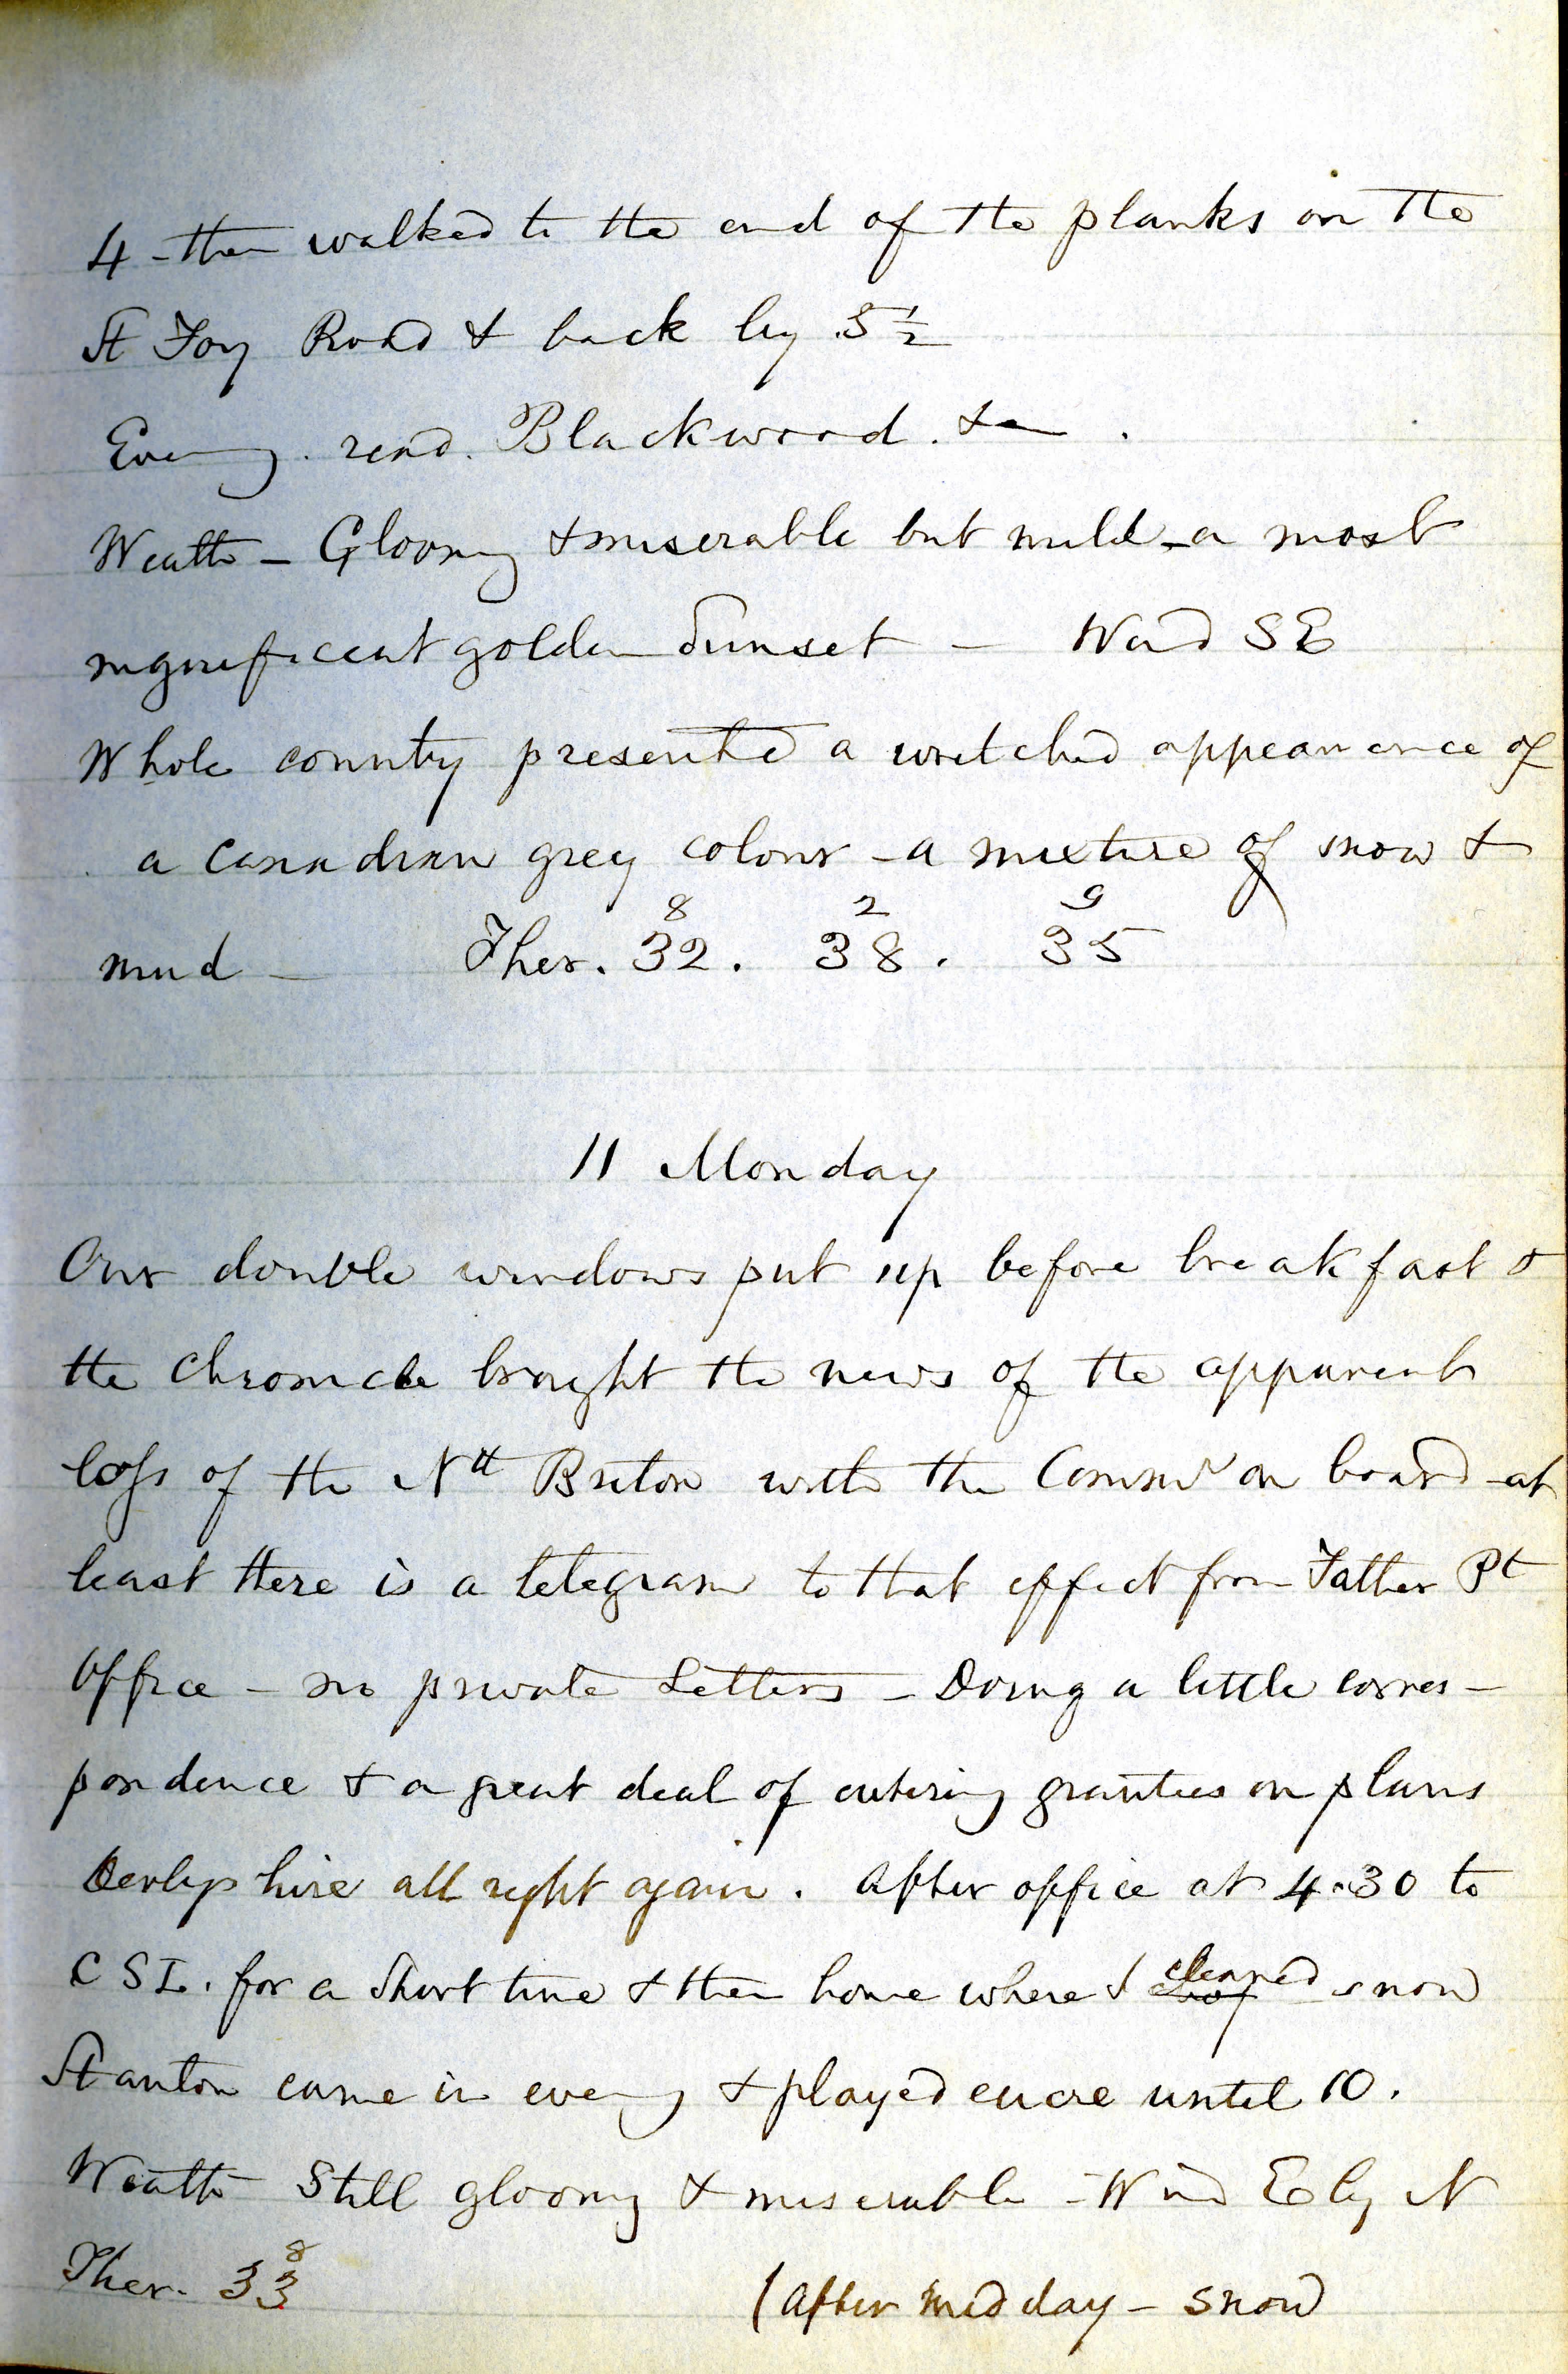 4 - then walked to the end of the planks on the
St Foy Road & back by 5 ½
Evening. read. Blackwood. &c .
Weather - Gloomy & miserable but mild - a most
magnificent golden Sunset - Wind SE
Whole country presented a wretched appearance of
a Canadian grey colour - a mixture of snow &
8 2 9
mud - Ther. 32. 38. 35
11 Monday
Our double windows put up before breakfast &
the chronicle brought the news of the apparent
loss of the Nth Briton with the Comm on board - at
least there is a telegram to that effect from Father Pt
Office - no private Letters - Doing a little corres-
pondence & a great deal of entering grantees on plans
Derbyshire all right again. After office at 4.30 to
C S I. for a Short time & then home where I cleaned snow
Stanton came in evening & played eucre until 10.
Weather Still gloomy & miserable - Wind E by N
8
Ther. 33 (After Mid day - snow